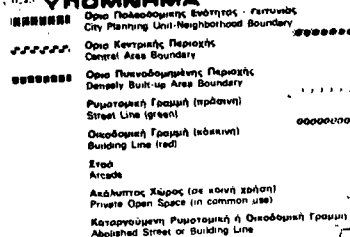 ΥΠΟΜΝΗΜΑ
Οριο Πολεοδομικης Ενότητας - Γειτονιάς
City Planning Unit-Neighborhood Boundary
Οριο Κεντρικής Περιοχής
Central Area Boundary
Οριο Πυκνοδομημένης Περιοχής
Densely Built-up Area Boundary
Ρυμοτομική Γραμμή (πράσινη)
Street Line (green)
Οικοδομική Γραμμή (κόκκινη)
Building Line (red)
Στοά
Arcade
Ακάλυπτος Χώρος (σε κοινή χρήση)
Private Open Space (in common use)
Καταργούμενη Ρυμοτομική ή Οικοδομική Γραμμή
Abolished Street or Building Line